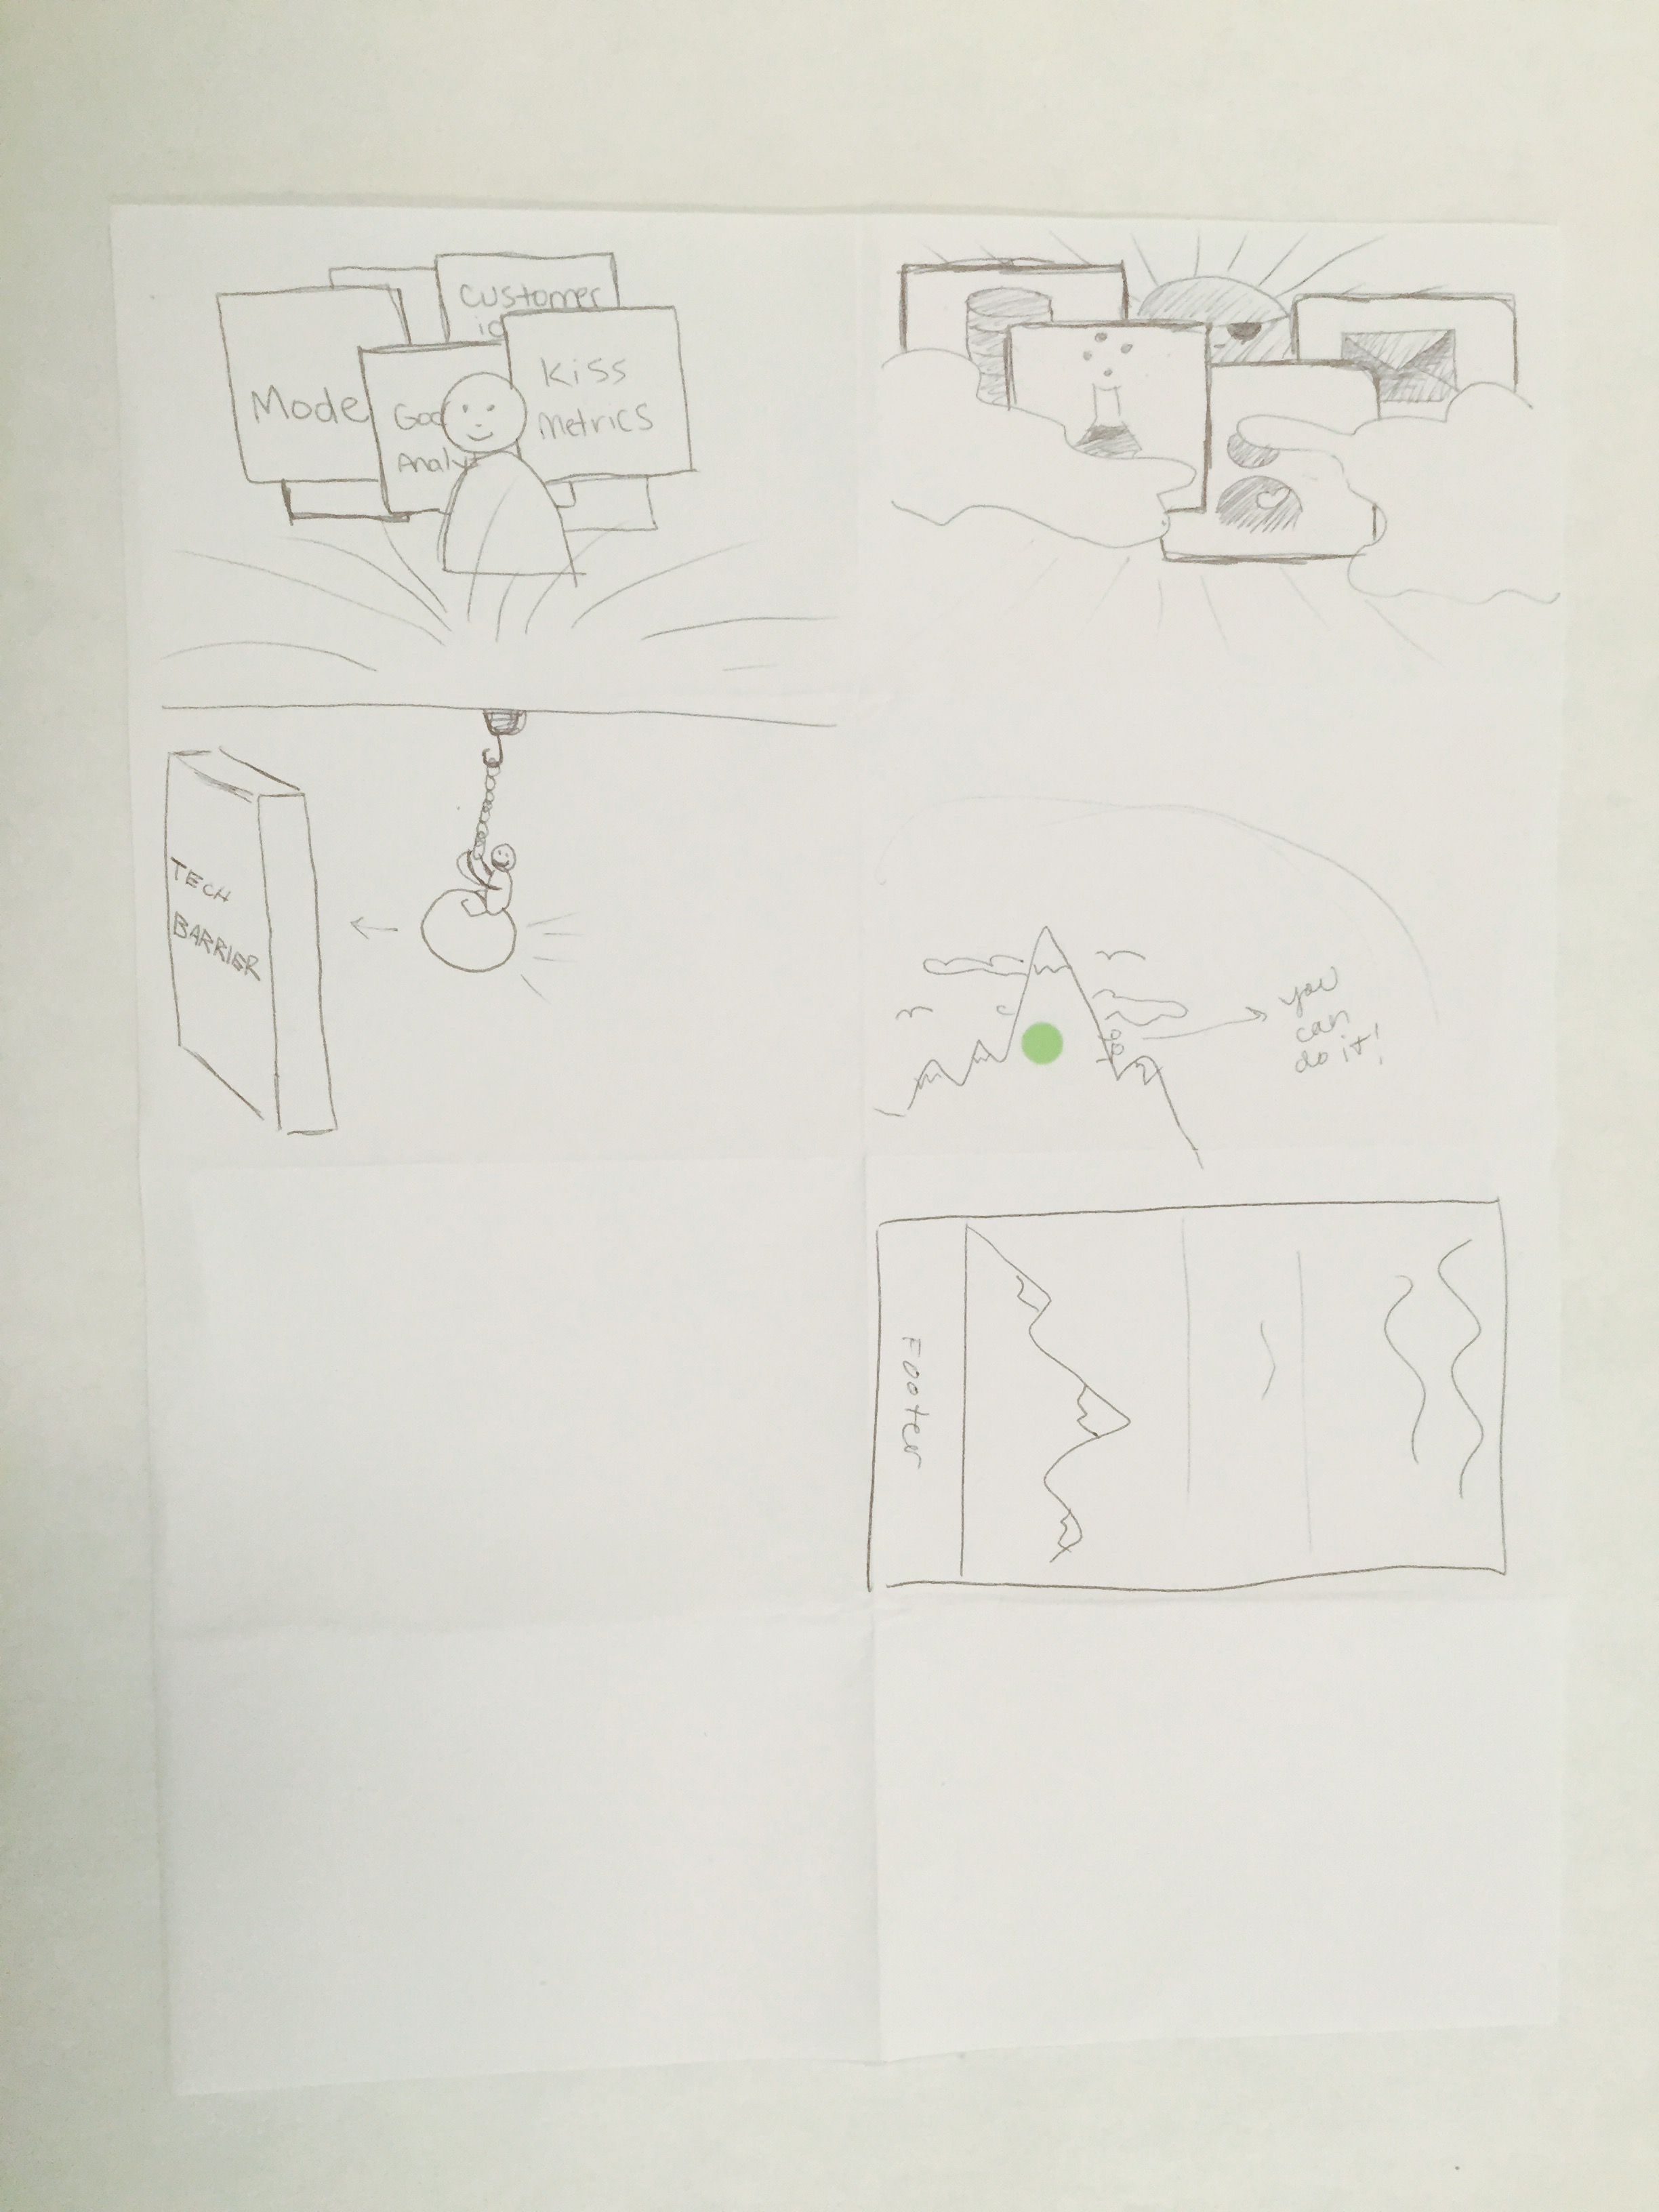 Customer
io
Mode
Goo
Analyt
Kiss
Metrics
TECH
BARRIER
you
can
do it!
Footer